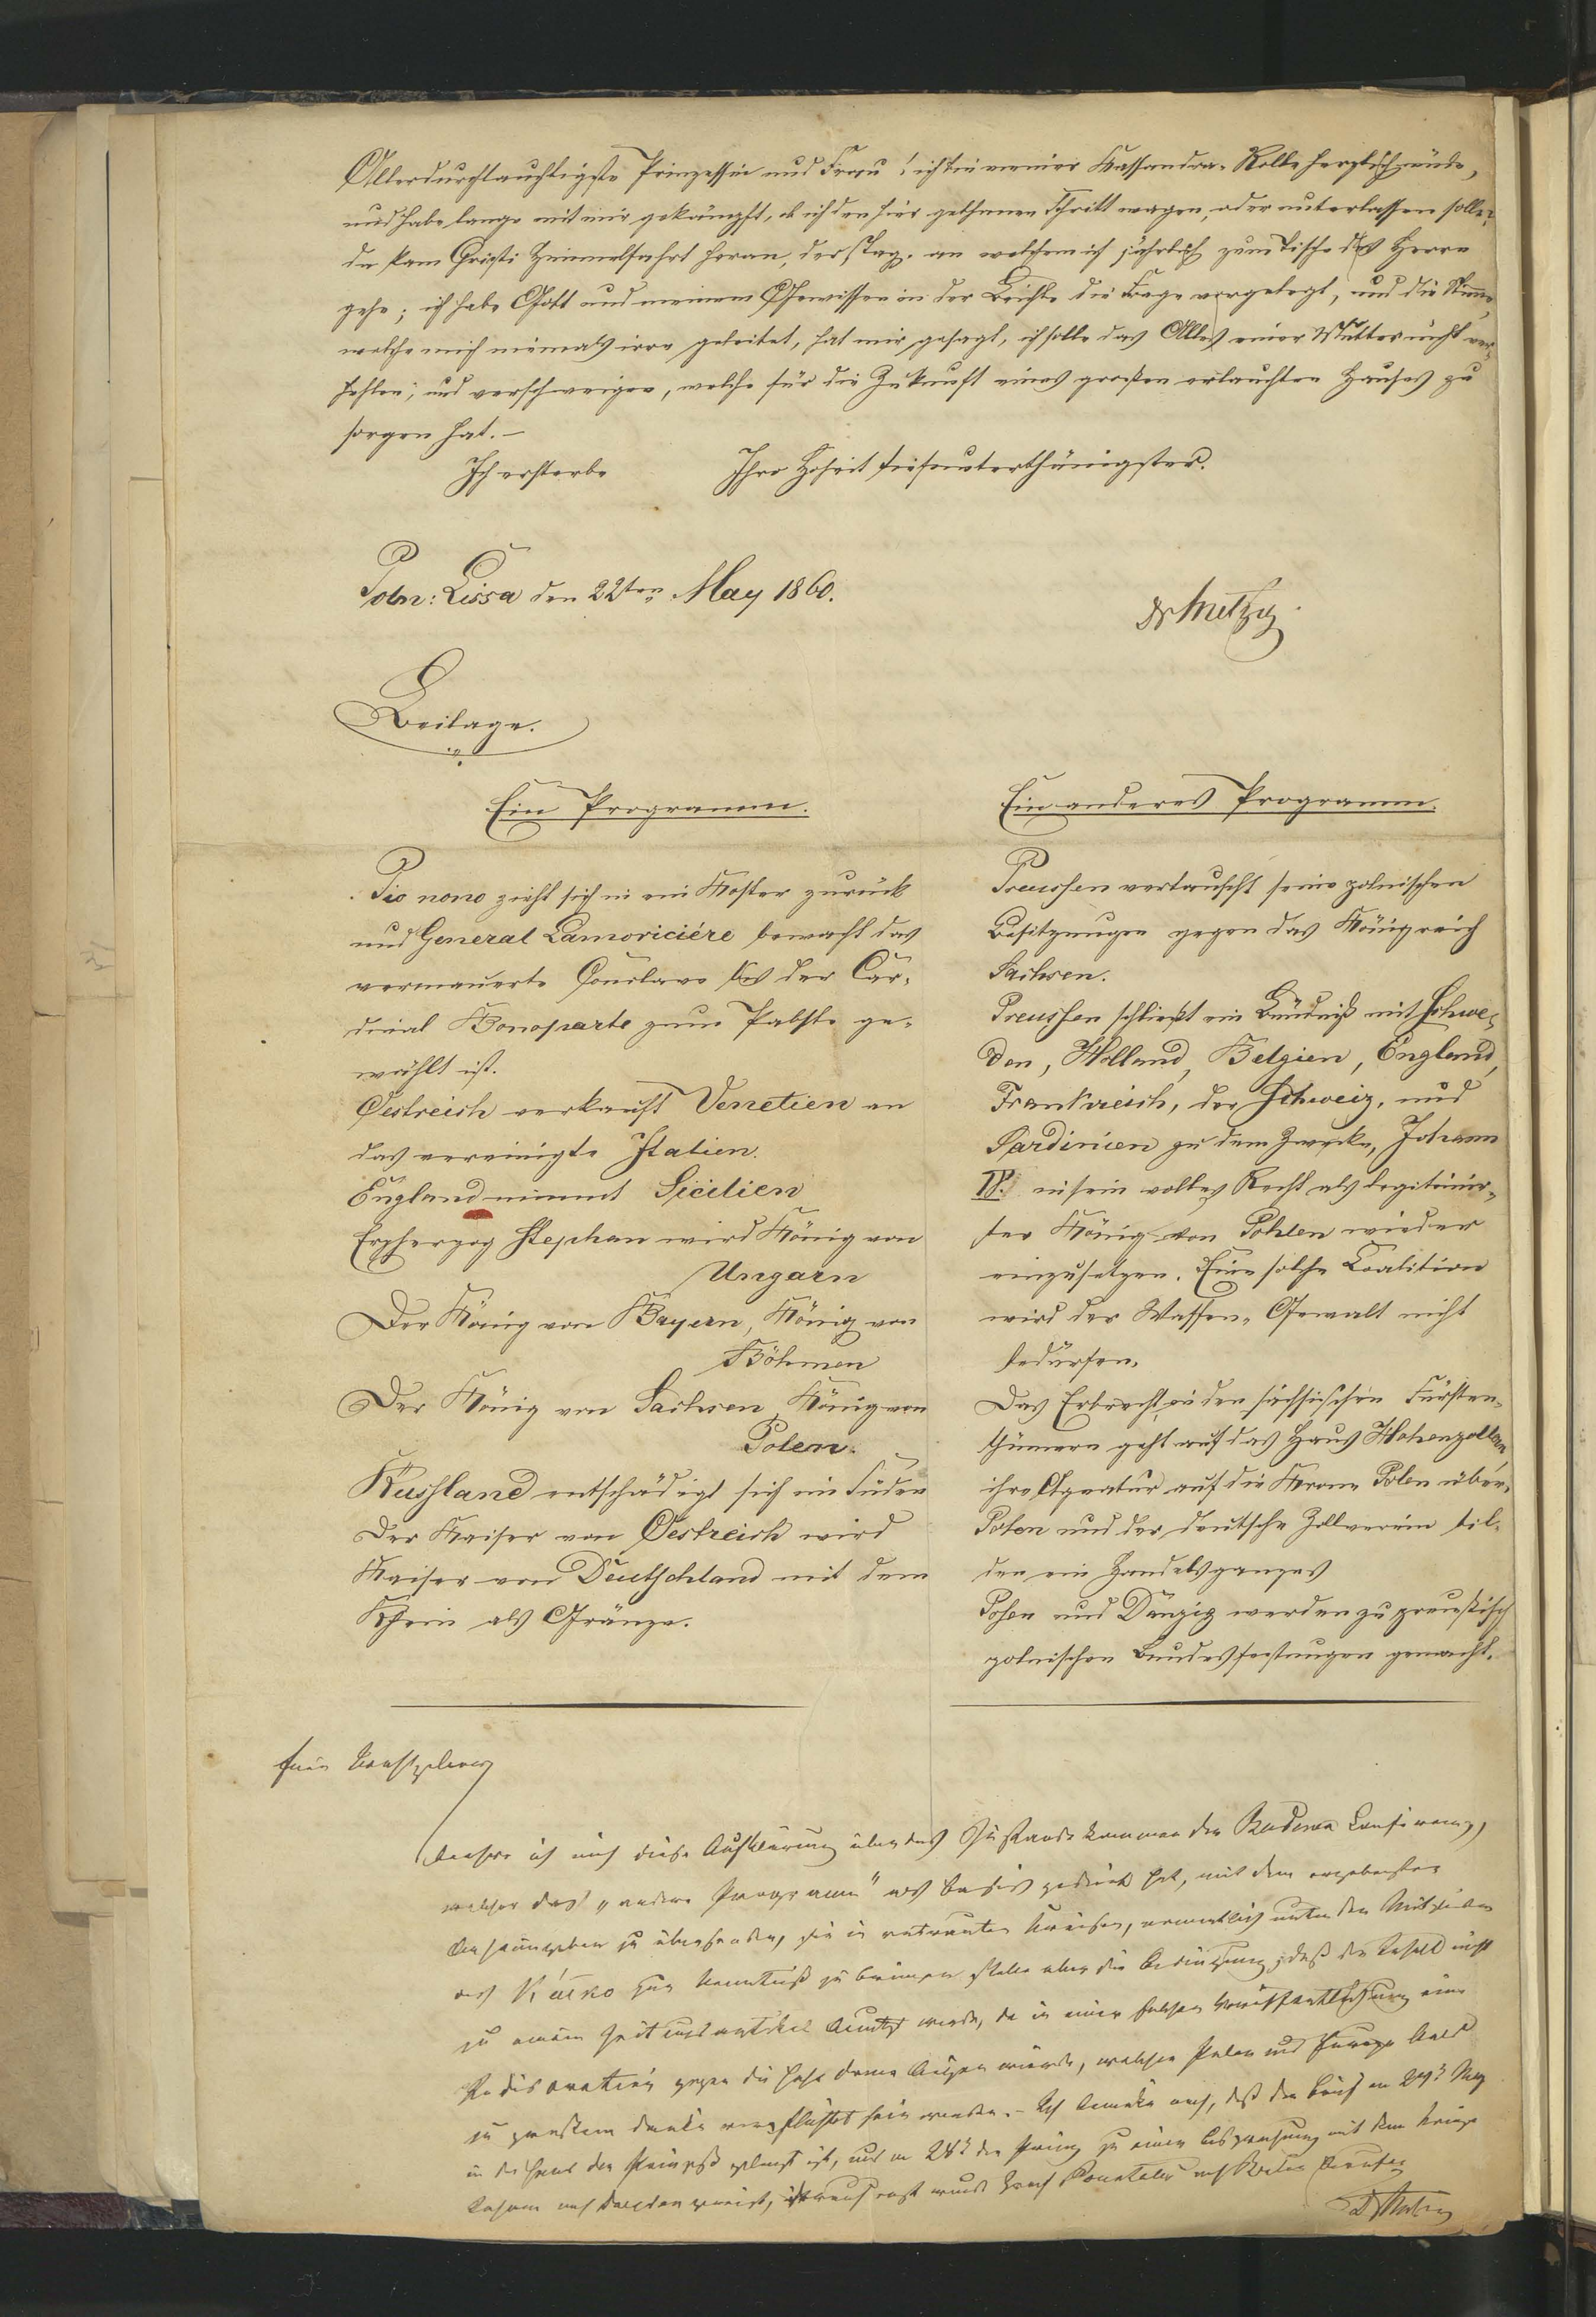 Allerdurchlauchtigste Prinzessin und Frau! ich bin meiner Kassandra-Rolle herzlich müde,
und habe lange mit mir gekämpft, ob ich den hier gethanen Schritt wagen, oder unterlassen solle?
da kam Christi Himmelfahrt heran, der Tag, an welchem ich jährlich zum Tische des Herrn
gehe; ich habe Gott und meinem Gewissen in der Beichte die Frage vorgelegt, und die Stimme,
welche mich niemals irre geleitet, hat mir gesagt, ich solle das Alles einer Mutter nicht ver-
hehlen, und verschweigen, welche für die Zukunft eines großen erlauchten Hauses zu
sorgen hat. —
Ich ersterbe Ihro Hoheit tiefunterthänigster.
Poln: Lissa den 22ten May 1860.
Dr Metzig
Beilage.
Ein Programm.
Pio nono zieht sich in ein Kloster zurück
und General Lamoriciére bewacht das
vermauerte Conclave bis der Car-
dinal Bonoparte zum Pabste ge-
wählt ist.
Oestreich verkauft Venetien an
das vereinigte Italien.
England nimmt Sicilien
Erzherzog Stephan wird König von
Ungarn
Der König von Bayern, König von
Böhmen
Der König von Sachsen, König von
Polen.
Russland entschädigt sich im Süden
Der Kaiser von Oestreich wird
Kaiser von Deutschland mit dem
Rhein als Gränze.
Ein anderes Programm.
Preussen vertauscht seine polnischen
Besitzungen gegen das Königreich
Sachsen.
Preussen schließt ein Bündniß mit Schwe-
den, Holland, Belgien, England,
Frankreich, der Schweiz, und
Sardinien zu dem Zwecke, Johann
IV. in sein volles Recht als legitimir-
ter König von Pohlen wieder
einzusetzen. Eine solche Coalition
wird der Waffen-Gewalt nicht
bedürfen.
Das Erbrecht in den sächsischen Fürsten-
thümern geht auf das Haus Hohenzollern
ihre Agnatur auf die Krone Polen über.
Polen und der deutsche Zollverein bil-
den ein Handelsganzes
Posen und Danzig werden zu preußisch
polnischen Bundesfestungen gemacht.
beehre ich mich diese Aufklärung über das Zustandekommen der Badener Conferenz,
welcher das "andere Programm" als Basis gedient hat, mit dem ergebensten
zu übersenden, sie in vertrauten Kreisen, namentlich unter den Mitgliedern
des Koło zur Kenntniß zu bringen stelle aber die Bedingung, daß der Inhalt nicht
zu einem Zeitungsartikel benutzt werde, da in einer solchen Veröffentlichung eine
Indiscretion gegen die hohe Dame liegen würde, welcher Polen und Europa bald
zu großem Danke verpflichtet sein werden. – Ich bemerke noch, daß der Brief am 24t May
in die Hand der Prinzeß gelangt ist, und am 28t der Prinz zu einer Besprechung mit dem Könige
Johann nach Dresden gereist, worauf erst wurde Graf nach Berlin berufen
Dr Metzig